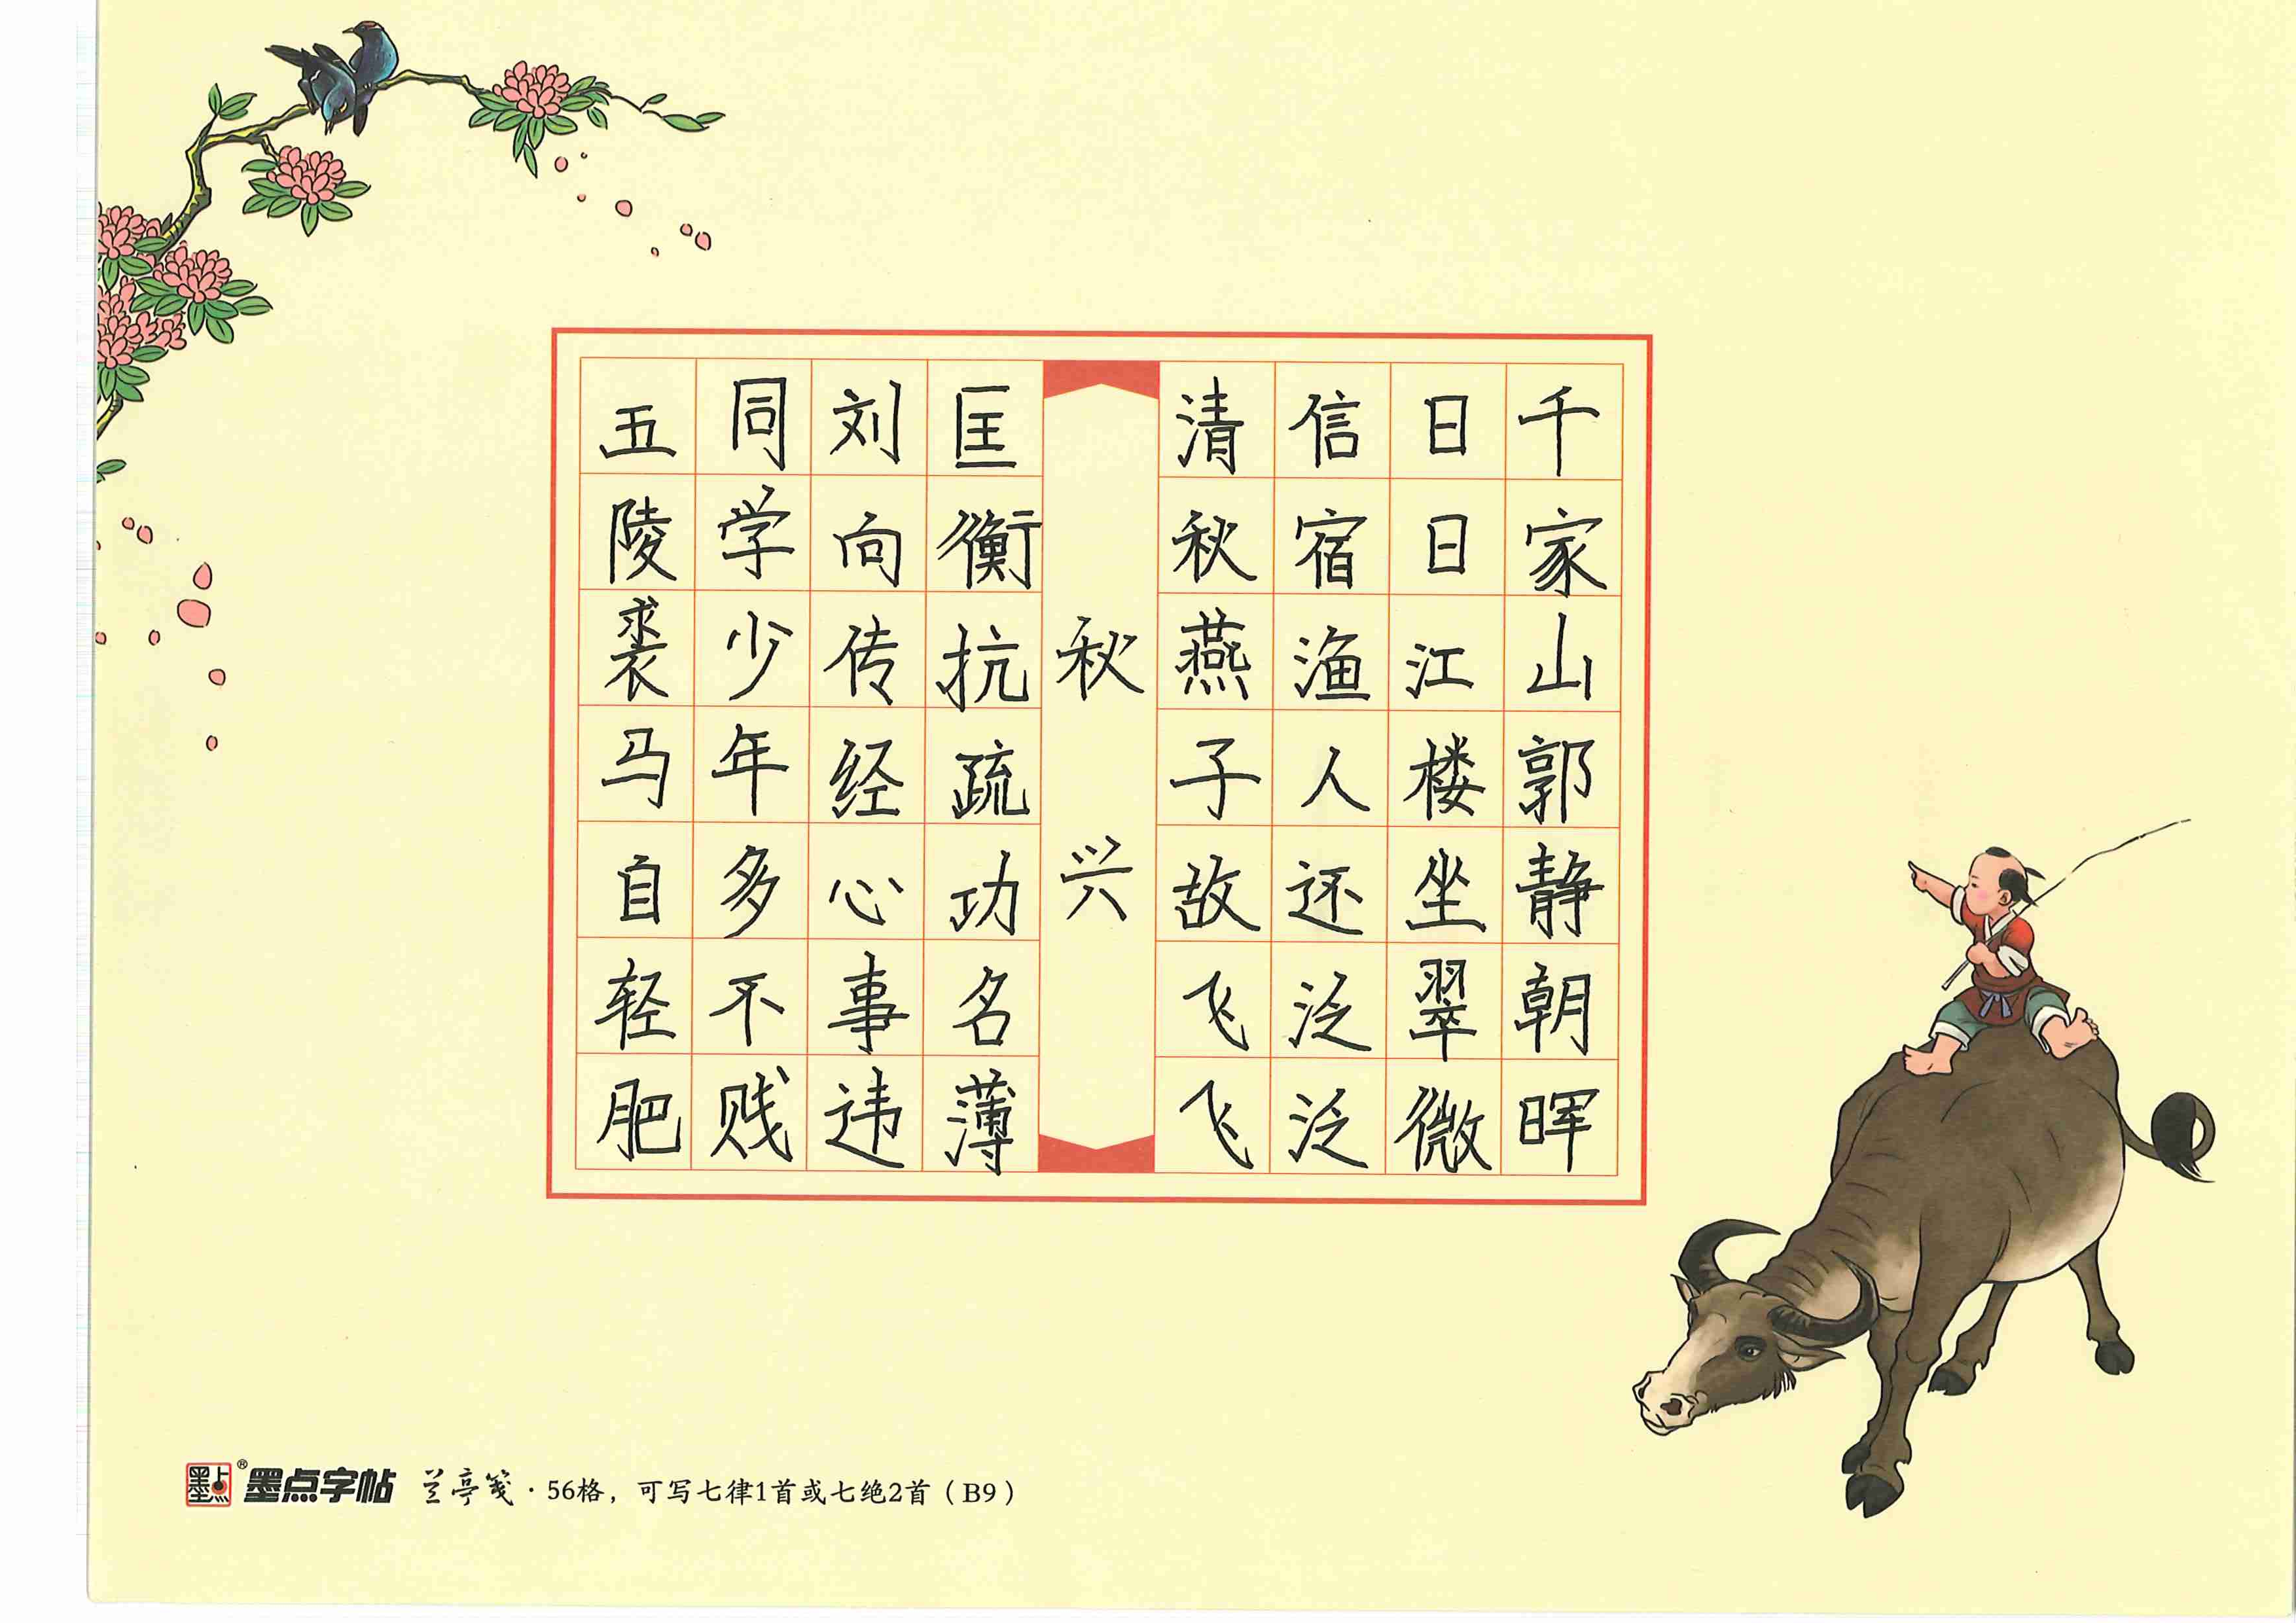 千家山郭静朝晖
日日江楼坐翠微
信宿渔人还泛泛
清秋燕子故飞飞
秋兴
匡衡抗疏功名薄
刘向传经心事违
同学少年多不贱
五陵裘马自轻肥
墨点
®
墨点字帖 兰亭笺·56格，可写七律1首或七绝2首（B9）